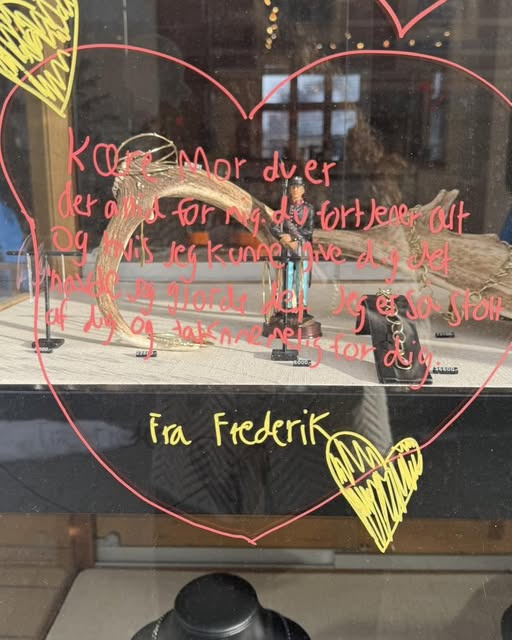 Kære Mor du er
der altid for mig, du fortjener alt
og hvis jeg kunne give dig det
havde jeg gjorde det. Jeg er så stolt
af dig og taknnemelig for dig.
Fra Frederik